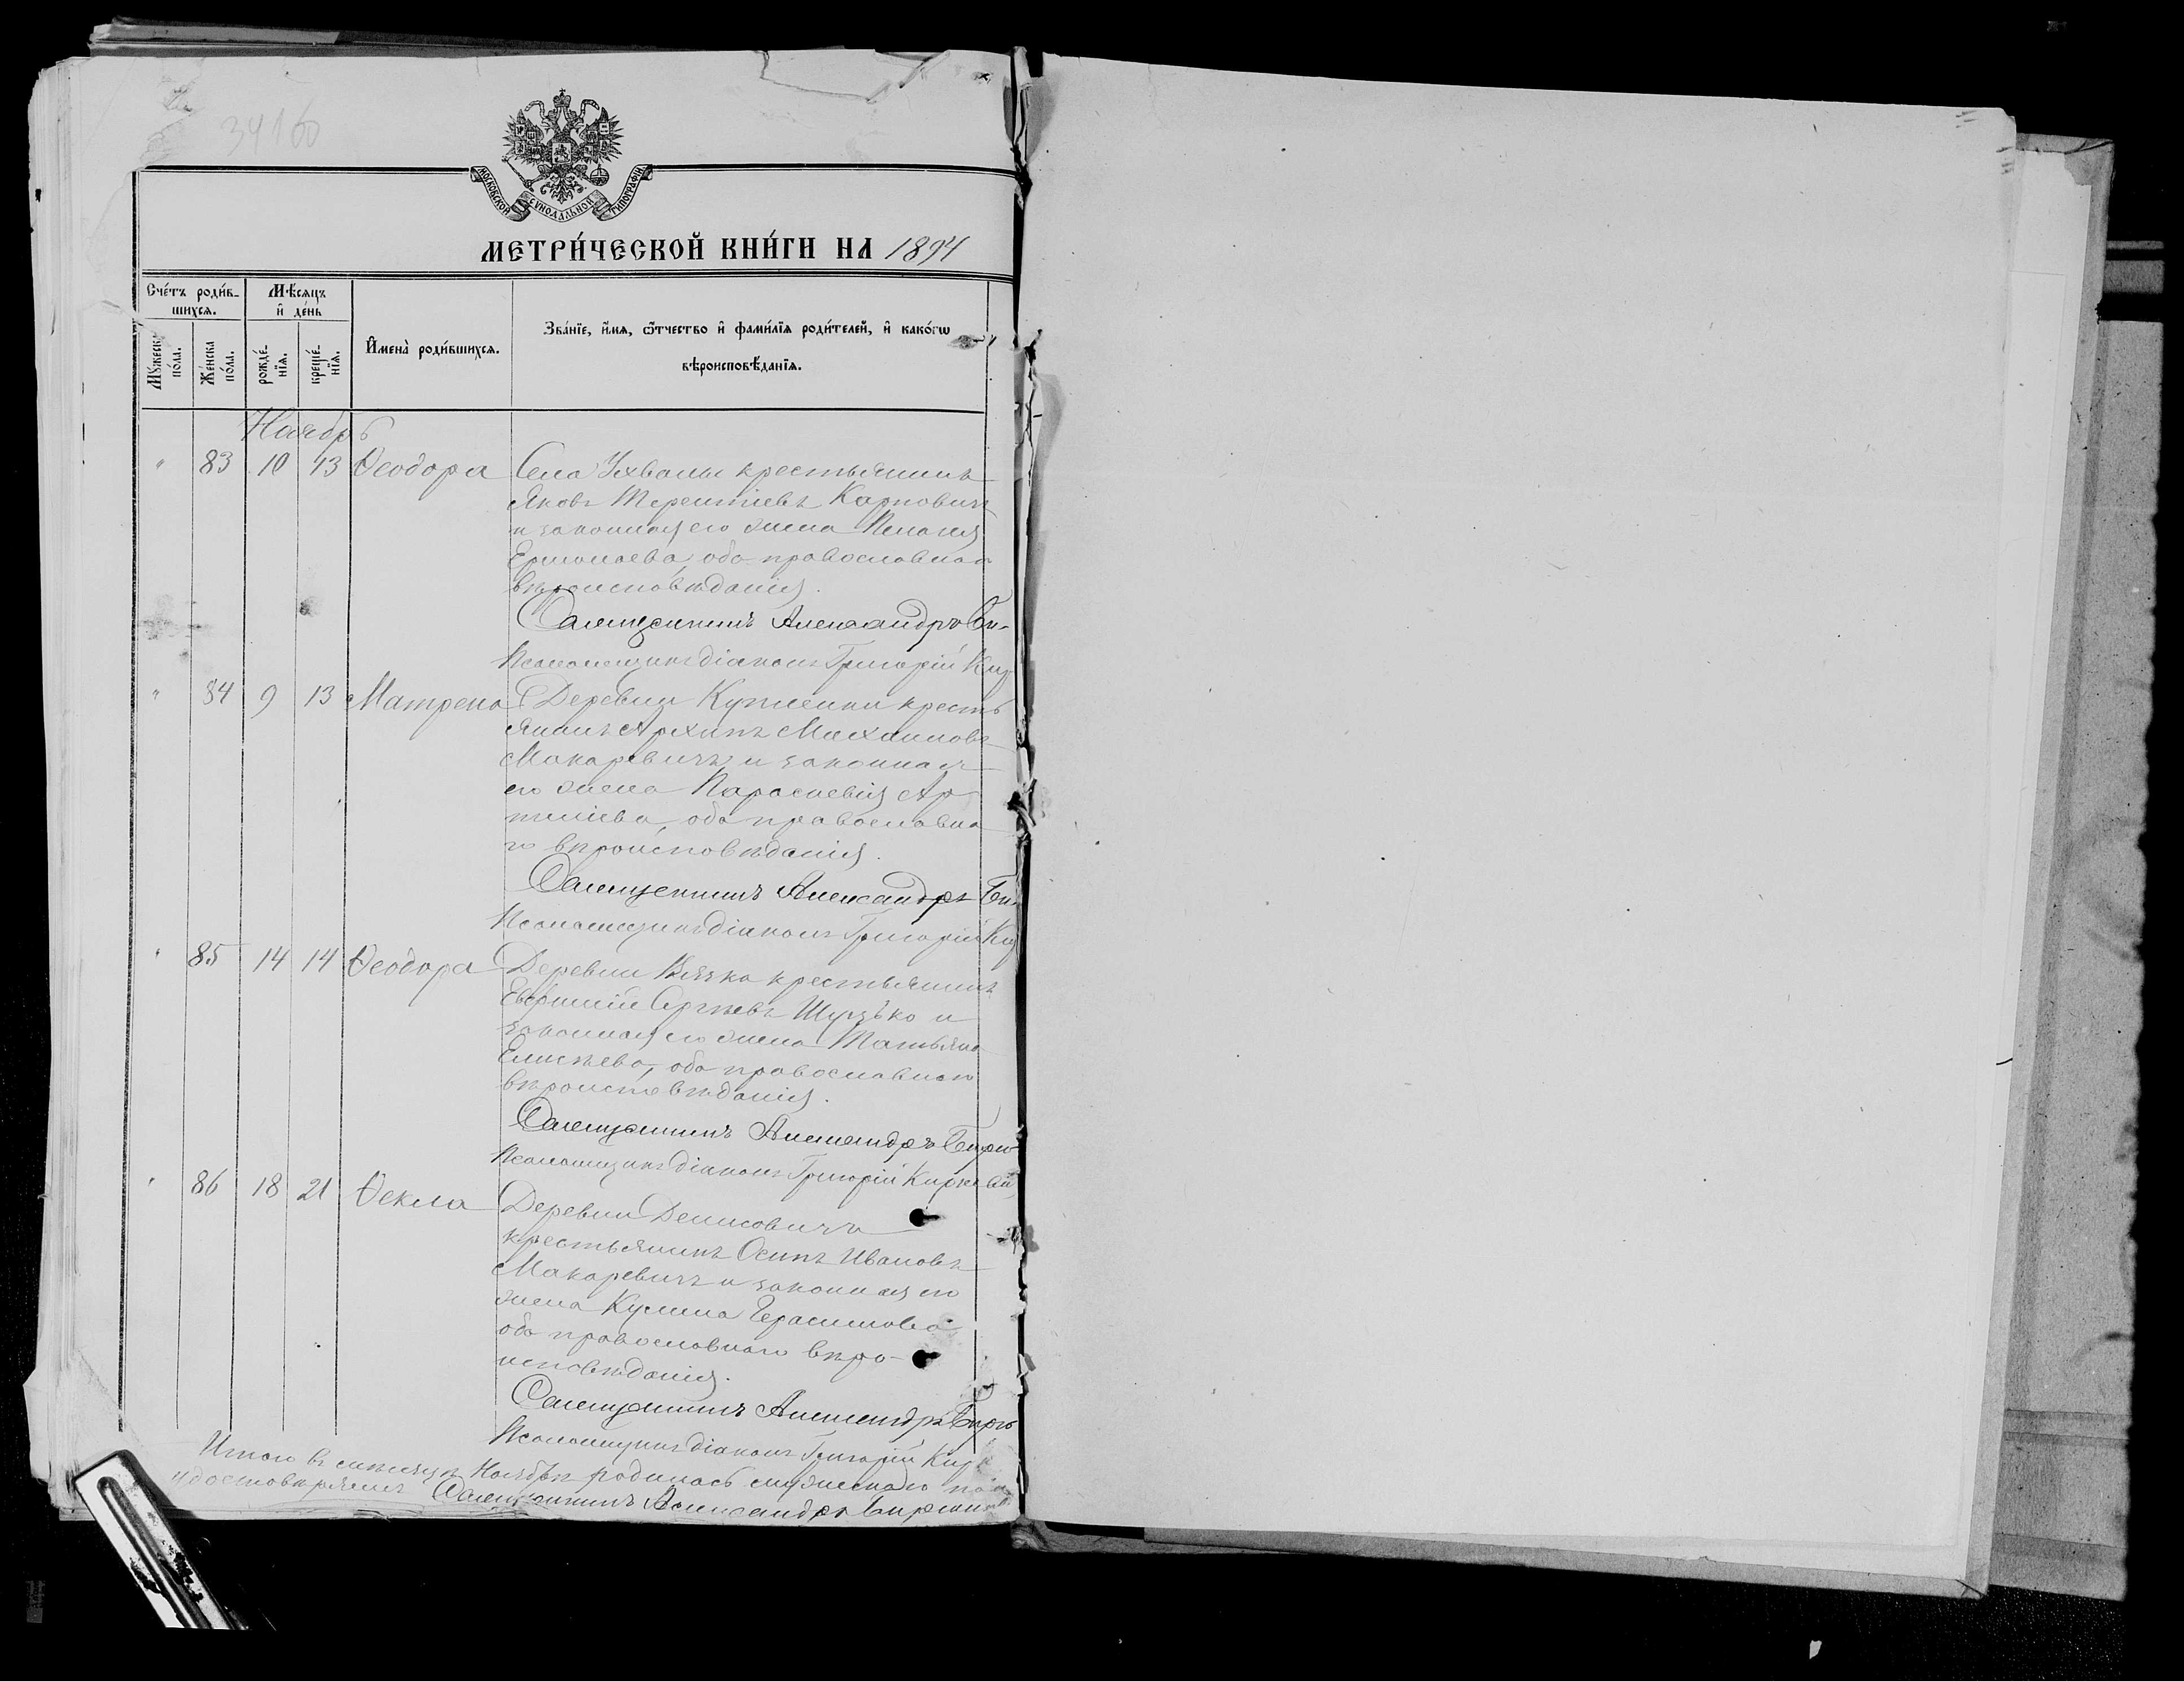 34160
МОСКОВСКОЙ СУНОДАЛЬНОЙ ТИПОГРАФІИ
МЕТРИ́ЧЕСКОЙ КНИ́ГИ НА 1894
Сче́тъ роди́в-
шихсѧ.
Мѣ́сѧцъ
и҆ де́нь
Мꙋ́жеска
по́ла.
Же́нска
по́ла.
рожде́-
нїѧ.
креще́-
нїѧ.
И҆мена̀ роди́вшихсѧ.
Зва́нїе, и҆́мѧ, ѻ҆́тчество и҆ фами́лїѧ роди́телей, и҆ како́гѡ
вѣроисповѣ́данїѧ.
Ноябрь
" 83 10 13 Ѳеодора Села Ухвалы крестьянинъ
Яковъ Терентіевъ Карповичъ
и законная его жена Пелагія
Ермолаева, оба православнаго
вѣроисповѣданія.
Священникъ Александръ Би-
Псаломщикъ діаконъ Григорій Кир
" 84 9 13 Матрена Деревни крестья
янинъ Архипъ Михаиловъ
Макаревичъ и законная
его жена Параскевія Ар
теміева, оба православна
го вѣроисповѣданія.
Священникъ Александръ Би
Псаломщикъ діаконъ Григорій Кир
" 85 14 14 Ѳеодора Деревни крестьянинъ
Евфимій Сергѣевъ и
законная его жена Татьяна
Елисѣева, оба православнаго
вѣроисповѣданія.
Священникъ Александръ Бирю
Псаломщикъ діаконъ Григорій
" 86 18 21 Ѳекла Деревни Денисовичъ
крестьянинъ Осипъ Ивановъ
Макаревичъ и законная его
жена Кулина Герасимова
оба православнаго вѣро-
исповѣданія.
Священникъ Александръ Бирю
Псаломщикъ діаконъ Григорій Кир
Итого въ мѣсяцѣ Ноябрѣ родилось мужескаго пола
удостовѣряемъ Священникъ Александръ